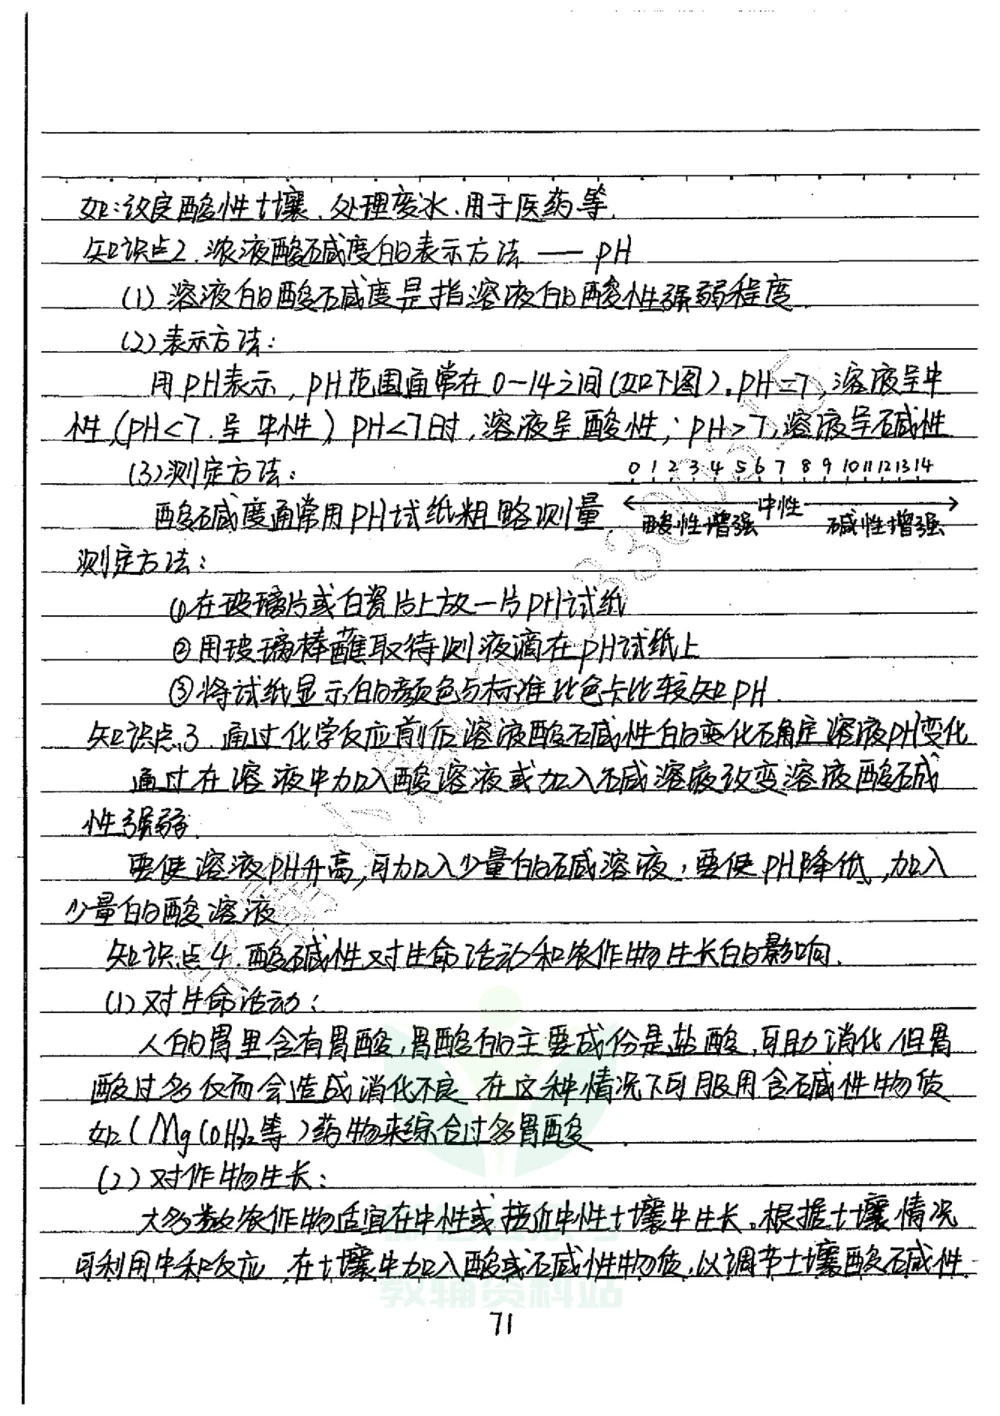 如:改良酸性土壤、处理废水、用于医药等.
知识点2.溶液酸碱度的表示方法 —— pH
(1) 溶液的酸碱度是指溶液的酸性强弱程度
(2)表示方法:
用pH表示，pH范围通常在0-14之间(如下图)。pH=7,溶液呈中
性,(pH<7.呈中性) pH<7时,溶液呈酸性; pH>7,溶液呈碱性
(3)测定方法:
0 1 2 3 4 5 6 7 8 9 10 11 12 13 14
酸碱度通常用pH试纸粗略测量.
酸性增强 中性 碱性增强
测定方法:
①在玻璃片或白瓷片上放一片pH试纸
②用玻璃棒蘸取待测液滴在pH试纸上
③将试纸显示的颜色与标准比色卡比较知pH.
知识点3.通过化学反应前后溶液酸碱性的变化确定溶液pH变化
通过在溶液中加入酸溶液或加入碱溶液改变溶液酸碱
性强弱.
要使溶液pH升高,可加入少量的碱溶液,要使pH降低,加入
少量的酸溶液
知识点4.酸碱性对生命活动和农作物生长的影响.
(1)对生命活动:
人的胃里含有胃酸,胃酸的主要成份是盐酸,可助消化,但胃
酸过多反而会造成消化不良,在这种情况下可服用含碱性物质
如(Mg(OH)₂等)药物来综合过多胃酸.
(2)对作物生长:
大多数农作物适宜在中性或接近中性土壤中生长。根据土壤情况
可利用中和反应,在土壤中加入酸或碱性物质,以调节土壤酸碱性.
教辅资料站
71